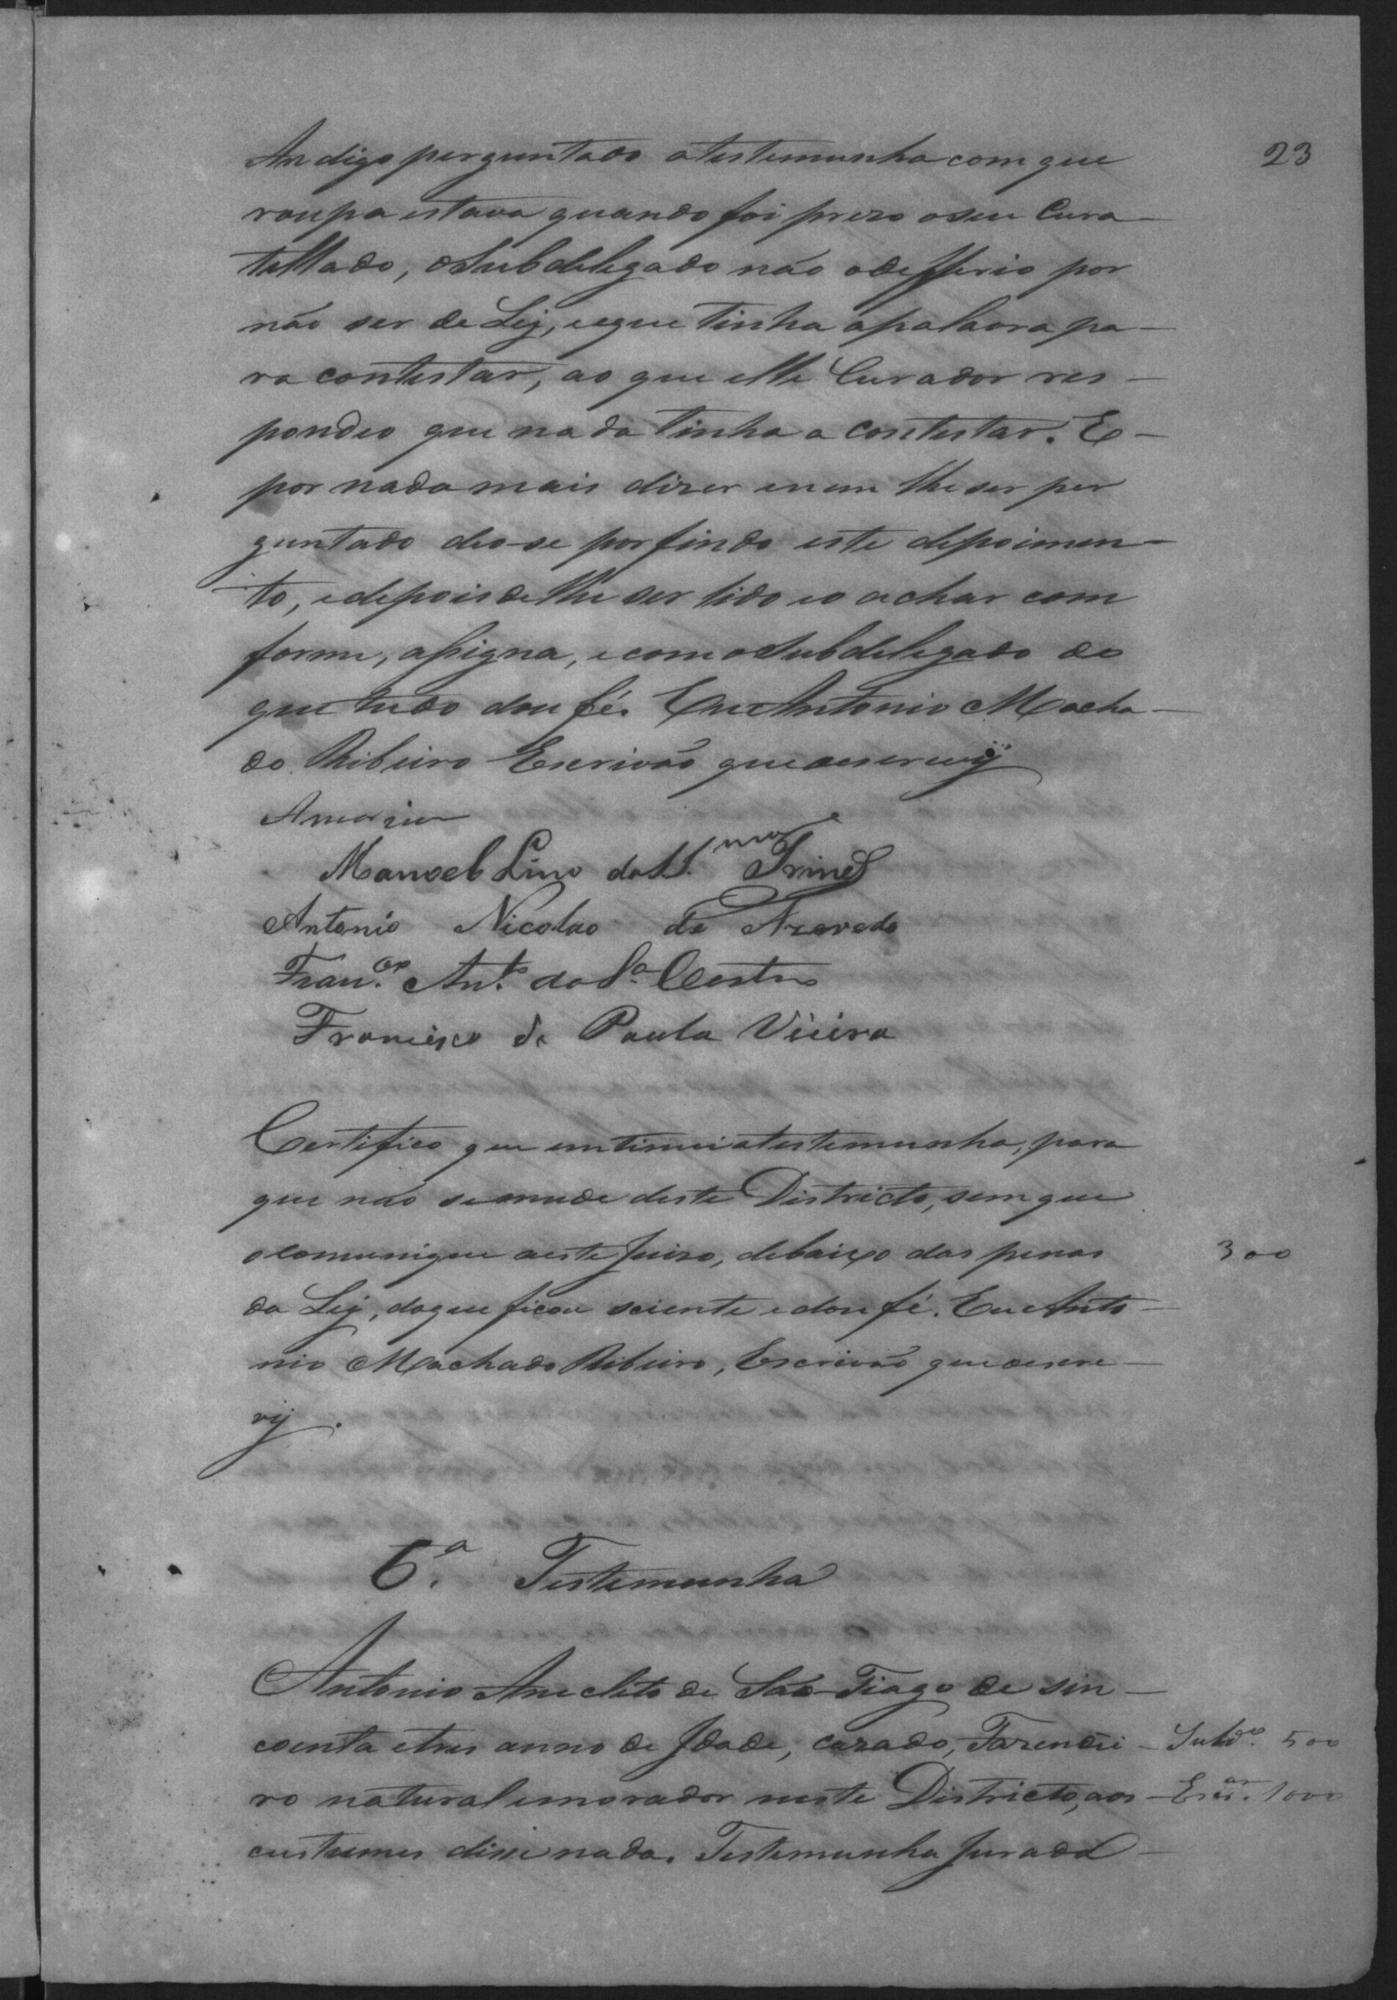 23
An digo perguntado a testemunha com que
roupa estava quando foi prezo o seu Cura-
tellado, o Subdelegado não o defferio por
não ser de Ley, e que tinha a palavra pa-
ra contestar, ao que elle Curador res-
pondeo que nada tinha a contestar. E
por nada mais dizer e nem lhe ser per
guntado deo-se por findo este depoimen-
to, e depois de lhe ser lido e o achar com
forme, assigna, e com o Subdelegado do
que tudo dou fé. Eu Antonio Macha-
do Ribeiro Escrivão que escrevij
Amorim
Manoel Lino da S.
Antonio Nicolao de Azevedo
Fran.co Ant.o da S.a Castro
Francisco de Paula Vieira
Certifico que intimei a testemunha, para
que não se mude deste Districto, sem que
o comunique a este Juizo, debaixo das penas
300
da Ley, do que ficou sciente e dou fé. Eu Anto-
nio Machado Ribeiro, Escrivão que escre-
vij.
6.a Testemunha
Antonio Anecleto de São Tiago de sin-
coenta e tres anno de Idade, cazado, Fazendei-
Subd.o 500
ro natural e morador neste Districto, aos
Escr.am 1000
custumes disse nada. Testemunha Jurada